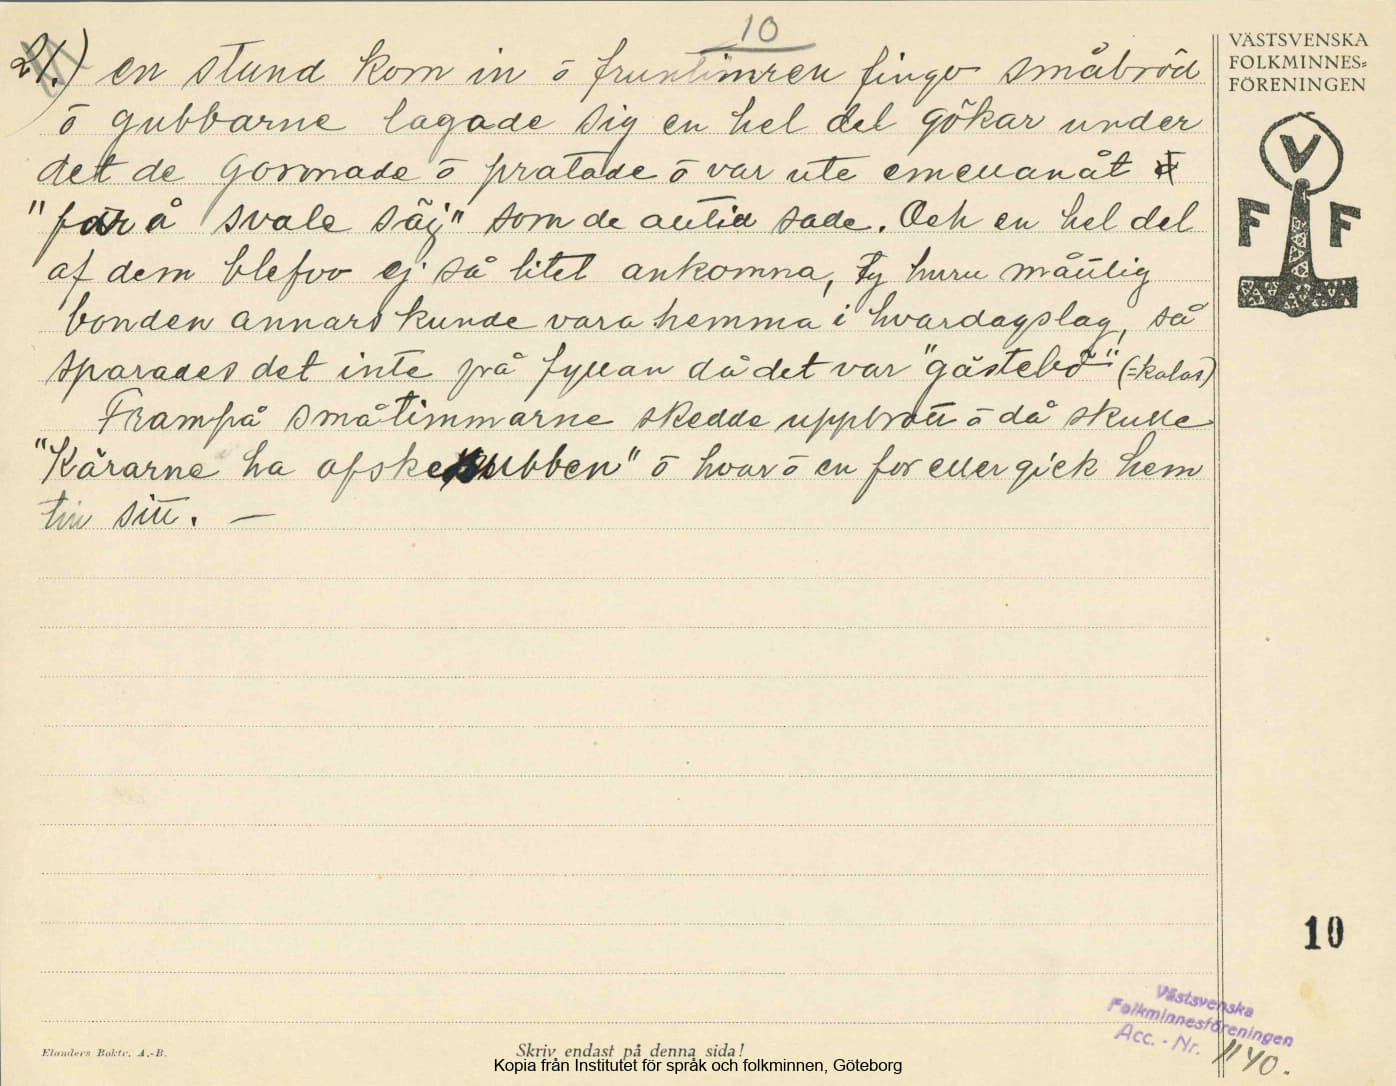 10
21.) en stund kom in ō fruntimren fingo småbröd
ō gubbarne lagade sig en hel del gökar under
det de gormade ō pratade ō var ute emellanåt
"får å svale säj" som de alltid sade. Och en hel del
af dem blefvo ej så litet ankomna, ty huru måttlig
bonden annars kunde vara hemma i hvardagslag, så
sparades det inte på fyllan då det var "gästebö" (=kalas)
Frampå småtimmarne skedde uppbrott ō då skulle
"Kärarne ha afskedssubben" ō hvar ō en for eller gick hem
till sitt. —
VÄSTSVENSKA
FOLKMINNES=
FÖRENINGEN
V
F F
10
Västsvenska
Folkminnesföreningen
Acc. - Nr. 1140.
Elanders Boktr. A.-B.
Skriv endast på denna sida!
Kopia från Institutet för språk och folkminnen, Göteborg